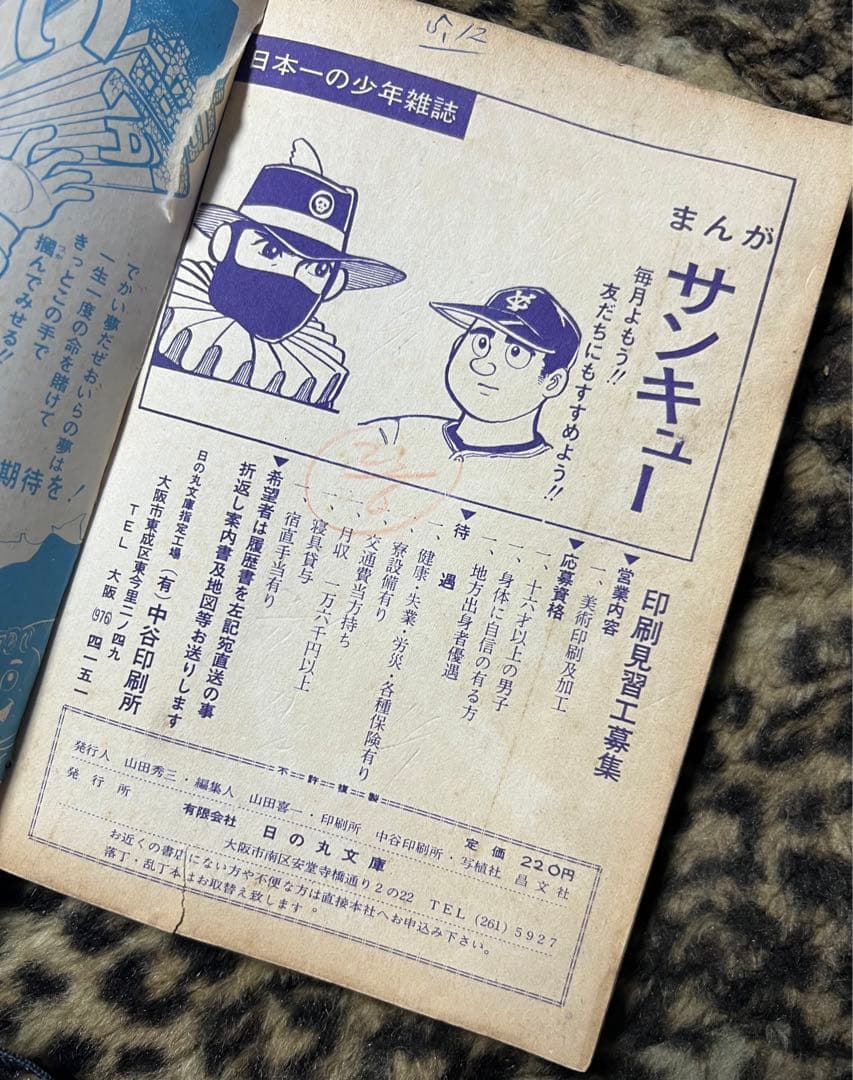 日本一の少年雑誌
まんが
サンキュー
毎月よもう!!
友だちにもすすめよう!!
印刷見習工募集
▼営業内容
一、美術印刷及加工
▼応募資格
一、十六才以上の男子
一、身体に自信の有る方
一、地方出身者優遇
▼待遇
一、健康・失業・労災・各種保険有り
一、寮設備有り
一、交通費当方持ち
一、月収 一万六千円以上
一、寝具貸与
一、宿直手当有り
▼希望者は履歴書を左記宛直送の事
折返し案内書及地図等お送りします
日の丸文庫指定工場 (有) 中谷印刷所
大阪市東成区東今里二ノ四九
TEL 大阪 (976) 四一五一
不許複製
定価 220円
発行人 山田秀三・編集人 山田喜一・印刷所 中谷印刷所・写植社 昌文社
発行所 有限会社 日の丸文庫
大阪市南区安堂寺橋通り2の22 TEL (261) 5927
お近くの書店にない方や不便な方は直接本社へお申込み下さい。
落丁・乱丁本はお取替え致します。
でかい夢だぜおいらの夢は
一生一度の命を賭けて
きっとこの手で
摑んでみせる!!
期待を!